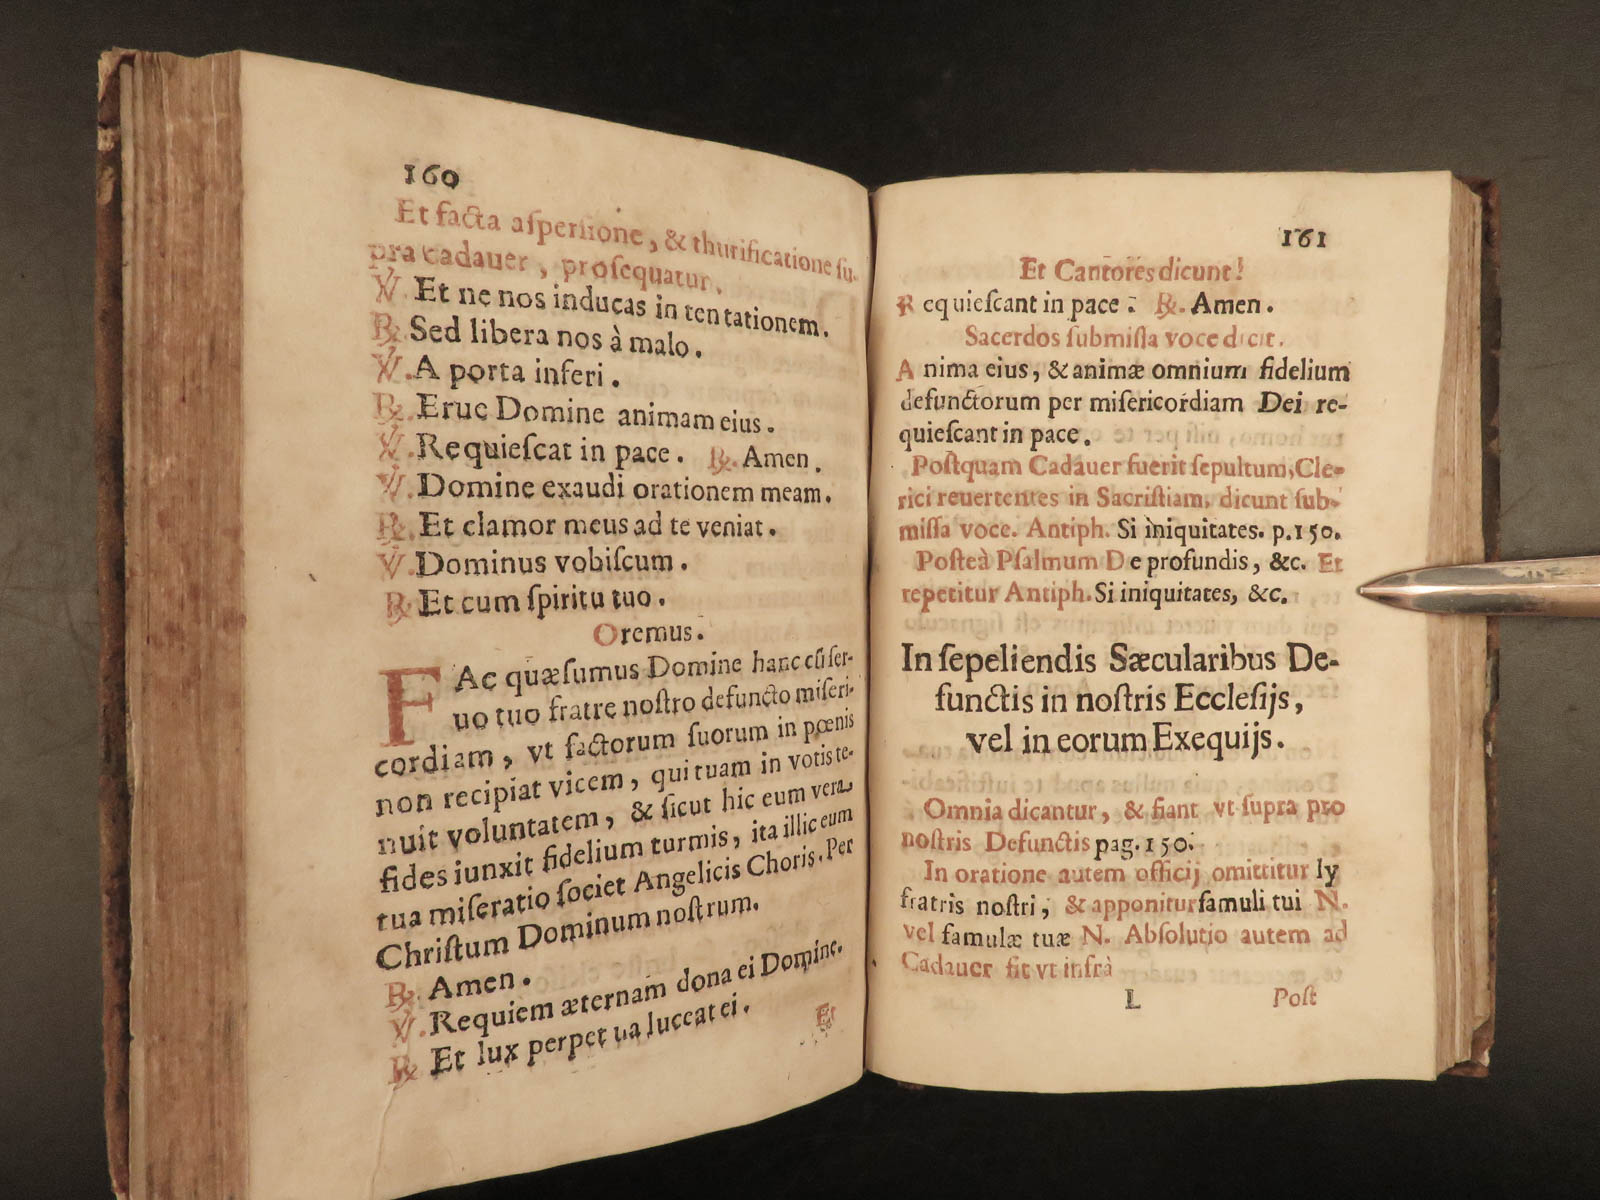 160
Et facta aſperſione, & thurificatione ſu-
pra Cadauer, proſequatur.
℣. Et ne nos inducas in tentationem.
℟. Sed libera nos à malo.
℣. A porta inferi.
℟. Erue Domine animam eius.
℣. Requieſcat in pace. ℟. Amen.
℣. Domine exaudi orationem meam.
℟. Et clamor meus ad te veniat.
℣. Dominus vobiſcum.
℟. Et cum ſpiritu tuo.
Oremus.
FAc quæſumus Domine hanc cũ ſer-
uo tuo fratre noſtro defuncto miſeri-
cordiam, vt factorum ſuorum in pœnis
non recipiat vicem, qui tuam in votis te-
nuit voluntatem, & ſicut hic eum vera
fides iunxit fidelium turmis, ita illic eum
tua miſeratio ſociet Angelicis Choris. Per
Chriſtum Dominum noſtrum.
℟. Amen.
℣. Requiem æternam dona ei Domine.
℟. Et lux perpetua luceat ei.
Et
161
Et Cantores dicunt:
Requieſcant in pace. ℟. Amen.
Sacerdos ſubmiſſa voce dicit.
Anima eius, & animæ omnium fidelium
defunctorum per miſericordiam Dei re-
quieſcant in pace.
Poſtquam Cadauer fuerit ſepultum, Cle-
rici reuertentes in Sacriſtiam, dicunt ſub-
miſſa voce. Antiph. Si iniquitates. p.150.
Poſteà Pſalmum De profundis, &c. Et
repetitur Antiph. Si iniquitates, &c.
In ſepeliendis Sæcularibus De-
functis in noſtris Eccleſijs,
vel in eorum Exequijs.
Omnia dicantur, & fiant vt ſupra pro
noſtris Defunctis pag. 150.
In oratione autem officij omittitur ly
fratris noſtri, & apponitur famuli tui N.
vel famulæ tuæ N. Abſolutio autem ad
Cadauer fit vt infrà
L Poſt